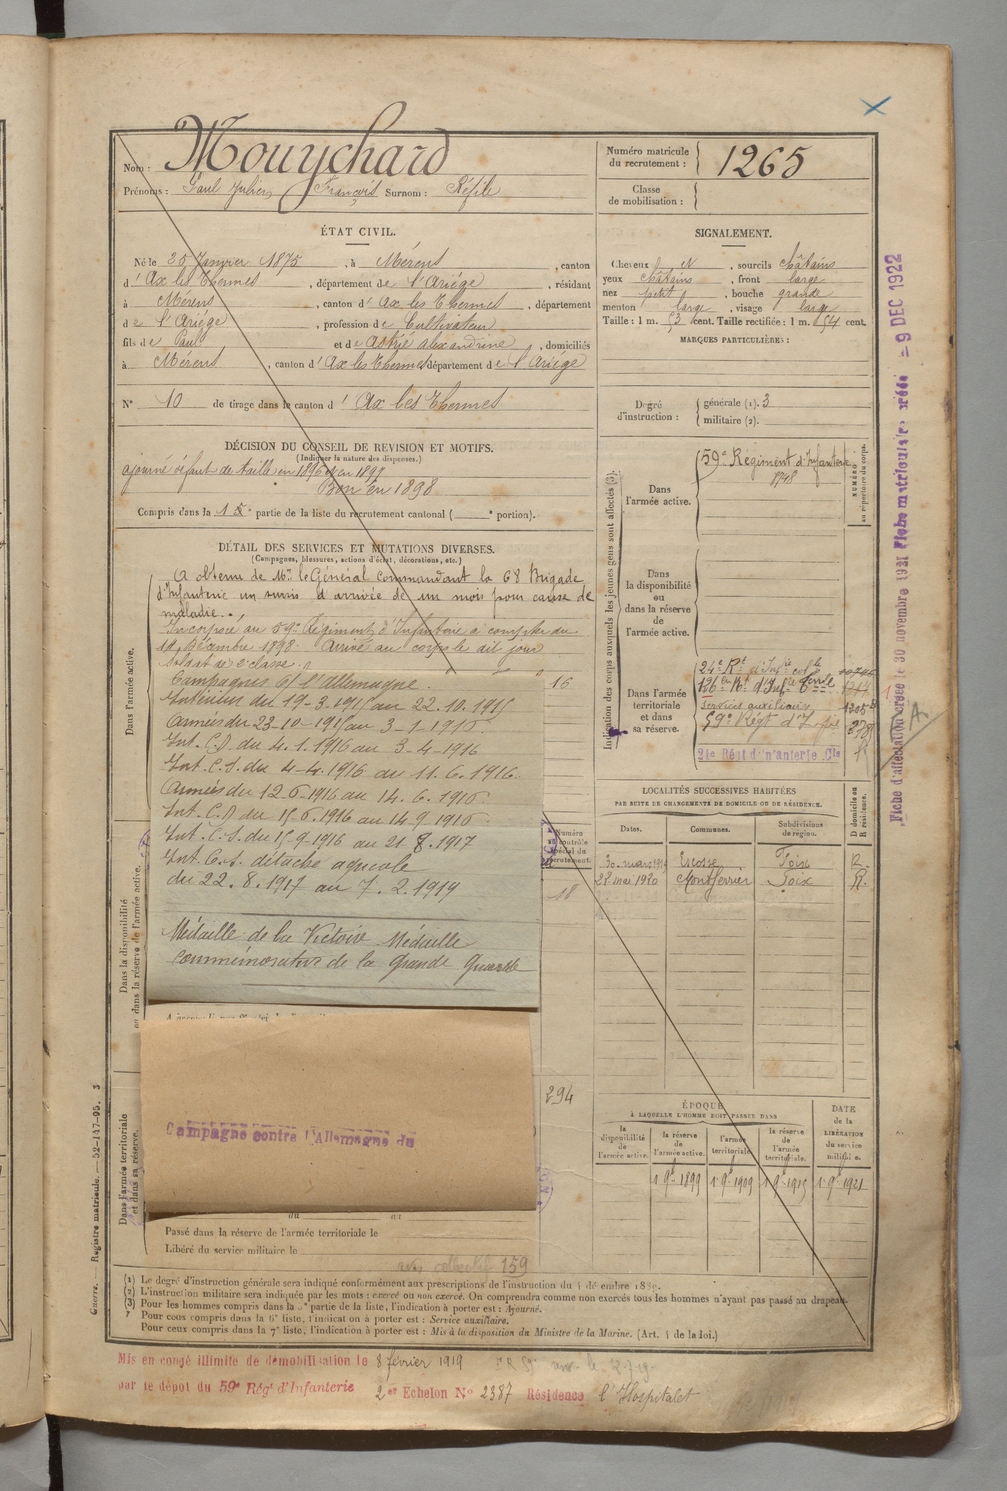 Nom : Mouychard
Prénoms : Paul Julien François Surnom : Réfile
Numéro matricule du recrutement : 1265
Classe de mobilisation :
ÉTAT CIVIL.
Né le 25 Janvier 1875, à Mérens, canton
d'Ax les Thermes, département de l'Ariége, résidant
à Mérens, canton d'Ax les Thermes, département
de l'Ariége, profession de Cultivateur
fils de Paul et de Astrié alexandrine, domiciliés
à Mérens, canton d'Ax les Thermes département de l'Ariége
N° 10 de tirage dans le canton d'Ax les Thermes
SIGNALEMENT.
Cheveux N, sourcils châtains
yeux châtains, front large
nez petit, bouche grande
menton large, visage large
Taille : 1 m. 53 cent. Taille rectifiée : 1 m. 54 cent.
MARQUES PARTICULIÈRES :
Degré d'instruction : générale (1). 3
militaire (2).
DÉCISION DU CONSEIL DE REVISION ET MOTIFS.
(Indiquer la nature des dispenses.)
ajourné défaut de taille en 1896 et en 1897
Bon en 1898
Compris dans la 1e partie de la liste du recrutement cantonal ( e portion).
DÉTAIL DES SERVICES ET MUTATIONS DIVERSES.
(Campagnes, blessures, actions d'éclat, décorations, etc.)
A obtenu de Mr le Général commandant la 68 Brigade
d'Infanterie un sursis d'arrivée de un mois pour cause de
maladie.
Incorporé au 59e Régiment d'Infanterie à compter du
Décembre 1898. Arrivé au corps le dit jour
Soldat de 2e classe.
Campagnes C/ l'Allemagne.
16
Intérieur du 17-3-1915 au 22.10.1915
Armées du 23-10-1915 au 3-1-1916
Int. C.D. du 4.1.1916 au 3-4-1916
Int. C.S. du 4-4.1916 au 11.6.1916
Armées du 12.6.1916 au 14.6.1916
Int. C.D du 15.6.1916 au 14.9.1916
Int. C.S. du 15.9.1916 au 21.8.1917
Int. C.S. détaché agricole
du 22.8.1917 au 7.2.1919
Médaille de la Victoire Médaille
commémorative de la Grande Guerre
Campagne contre l'Allemagne du
Dans l'armée active.
Dans la disponibilité ou dans la réserve de l'armée active.
Dans l'armée territoriale et dans sa réserve.
Numéro de contrôle spécial du recrutement.
18
294
Passé dans la réserve de l'armée territoriale le
Libéré du service militaire le
159
Indication des corps auxquels les jeunes gens sont affectés (3).
Dans l'armée active.
59e Régiment d'Infanterie
NUMÉRO au répertoire du corps.
Dans la disponibilité ou dans la réserve de l'armée active.
Dans l'armée territoriale et dans sa réserve.
24e Rt d'Infie colle
126e Rt d'Infie terrle
Services auxiliaires
59e Régt d'Infie
24e Régt d'Infanterie Cle
LOCALITÉS SUCCESSIVES HABITÉES
PAR SUITE DE CHANGEMENTS DE DOMICILE OU DE RÉSIDENCE.
Dates. Communes. Subdivisions de région. D domicile ou R résidence.
30 mars 1914 Escosse Foix R.
28 mai 1920 Montferrier Foix R.
ÉPOQUE
À LAQUELLE L'HOMME DOIT PASSER DANS
la disponibilité de l'armée active. la réserve de l'armée active. l'armée territoriale. la réserve de l'armée territoriale.
DATE de la LIBÉRATION du service militaire.
1 9e 1899 1 9e 1909 1 9e 1915 1 9e 1921
(1) Le degré d'instruction générale sera indiqué conformément aux prescriptions de l'instruction du 4 décembre 1889.
(2) L'instruction militaire sera indiquée par les mots : exercé ou non exercé. On comprendra comme non exercés tous les hommes n'ayant pas passé au drapeau.
(3) Pour les hommes compris dans la 5e partie de la liste, l'indication à porter est : Ajourné.
Pour ceux compris dans la 6e liste, l'indication à porter est : Service auxiliaire.
Pour ceux compris dans la 7e liste, l'indication à porter est : Mis à la disposition du Ministre de la Marine. (Art. 4 de la loi.)
Mis en congé illimité de démobilisation le 8 février 1919
par le dépot du 59e Régt d'Infanterie 2e Echelon No 2387 Résidence l'Hospitalet
Guerre. — Registre matricule. — 52-147-95. 3
Fiche d'affectation créée le 30 novembre 1921 Fiche matriculaire créée = 9 DEC 1922